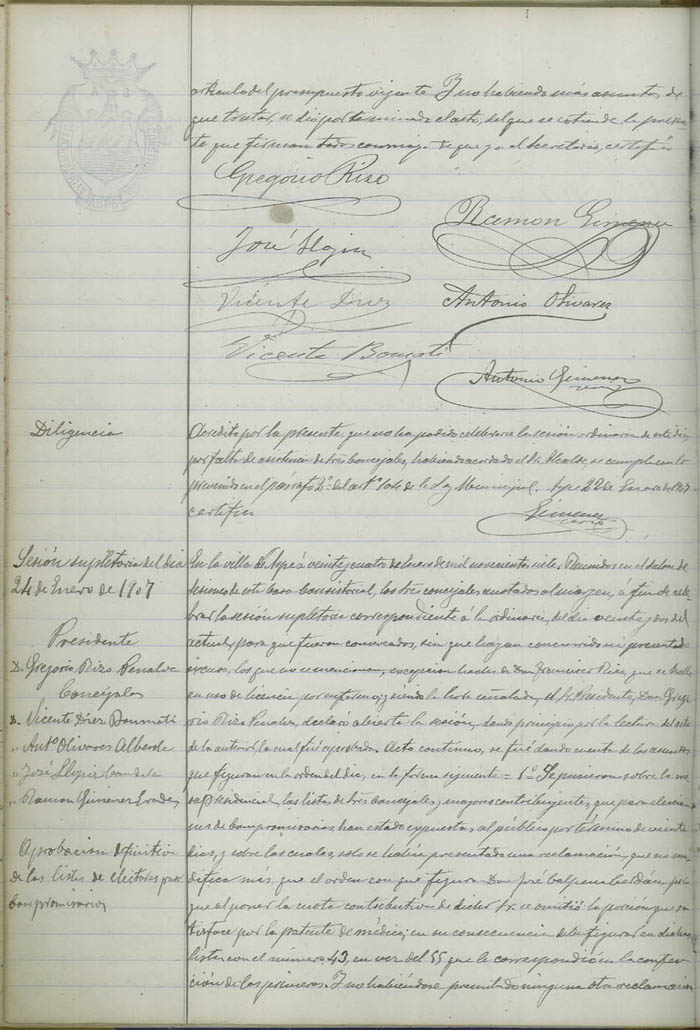 articulo del presupuesto vigente. Y no habiendo más asuntos de
que tratar, se dió por terminado el acto, del que se extiende la presen-
te que firman todos conmigo de que yo el Secretario, certifico
Gregorio Rizo
Ramon Gimenez
José Llopis
Vicente Diez
Antonio Olivares
Vicente Bonmati
Antonio Gimenez
Diligencia
Acredito por la presente que no ha podido celebrarse la sesión ordinaria de este dia
por falta de asistencia de Sres Concejales, habiendo acordado el Sr. Alcalde, se cumpla con lo
prevenido en el párrafo 2º del artº 104 de la Ley Municipal. Aspe 22 de Enero de 1907
certifico
Gimenez
Srio
Sesión supletoria del dia
24 de Enero de 1907
Presidente
D. Gregorio Rizo Penalva
Concejales
D. Vicente Diez Bonmati
" Antº Olivares Alberola
" José Llopis
" Ramon Gimenez
Aprobacion definitiva
de las listas de electores para
Compromisarios
En la villa de Aspe á veinte y cuatro de Enero de mil novecientos siete. Reunidos en el salon de
sesiones de esta Casa Consistorial, los Sres concejales anotados al margen, á fin de cele-
brar la sesión supletoria correspondiente á la ordinaria, del dia veinte y dos del
actual, para que fueron convocados, sin que hayan concurrido ni presentado
excusa, los que no se mencionan, excepcion hecha de Don Francisco Rizo, que se halla
en uso de licencia por enfermo; y siendo la hora señalada, el Sr. Presidente, Don Grego-
rio Rizo Penalva, declaro abierta la sesión, dando principio por la lectura del acta
de la anterior, la cual fué aprobada. Acto continuo, se fué dando cuenta de los asuntos
que figuran en la orden del dia, en la forma siguiente = 1º Se pusieron sobre la me-
sa presidencial, las listas de Sres Concejales y mayores contribuyentes, que para eleccio-
nes de Compromisarios, han estado expuestas al público por término de veinte
dias, y sobre las cuales, solo se habia presentado una reclamación, que no mo-
difica más, que el orden con que figura Don José Calpena Cerdán, por-
que al poner la cuota contributiva de dicho Sr. se omitió la porción que sa-
tisface por la patente de médico; en su consecuencia debe figurar en dichas
listas con el número 43, en vez del 55 que le correspondió en la confec-
ción de las primeras. Y no habiéndose presentado ninguna otra reclamación